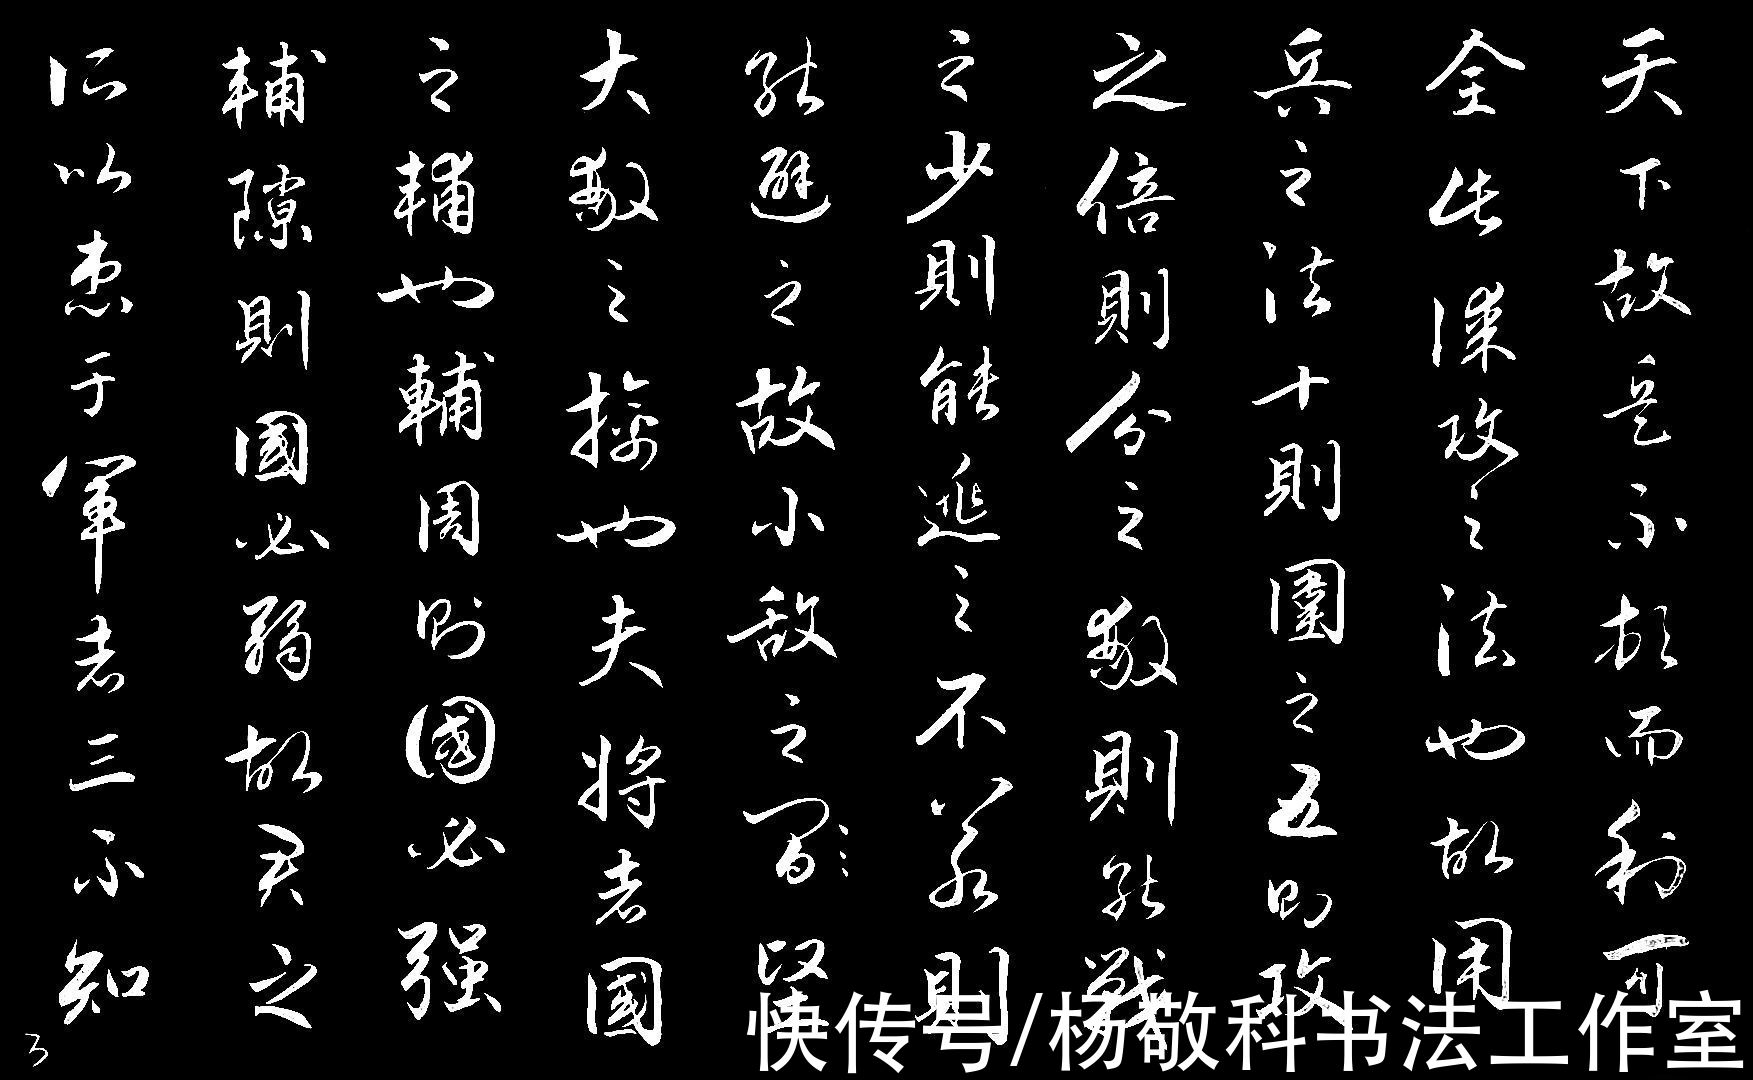 天下故兵不頓而利可
全此謀攻之法也故用
兵之法十則圍之五則攻
之倍則分之敵則能戰
之少則能逃之不若則
能避之故小敵之堅
大敵之擒也夫將者國
之輔也輔周則國必强
輔隙則國必弱故君之
所以患于軍者三不知
3
快传号/杨敬科书法工作室